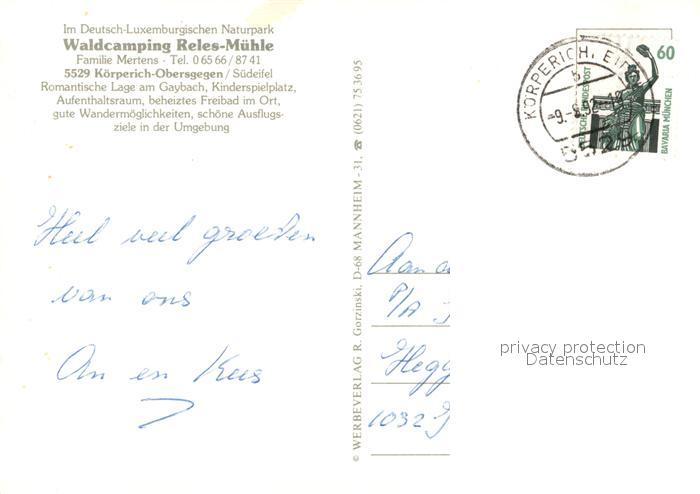 Im Deutsch-Luxemburgischen Naturpark
Waldcamping Reles-Mühle
Familie Mertens · Tel. 0 65 66 / 87 41
5529 Körperich-Obersgegen / Südeifel
Romantische Lage am Gaybach, Kinderspielplatz,
Aufenthaltsraum, beheiztes Freibad im Ort,
gute Wandermöglichkeiten, schöne Ausflugs-
ziele in der Umgebung
Heel veel groeten
van ons
An en Kees
© WERBEVERLAG R. Gorzinski, D-68 MANNHEIM - 31, ☎ (0621) 75 36 95
KÖRPERICH, EIFEL
b
-9.-8.92-12
5529
60
DEUTSCHE BUNDESPOST
BAVARIA MÜNCHEN
Aan
P/A
1032
privacy protection
Datenschutz